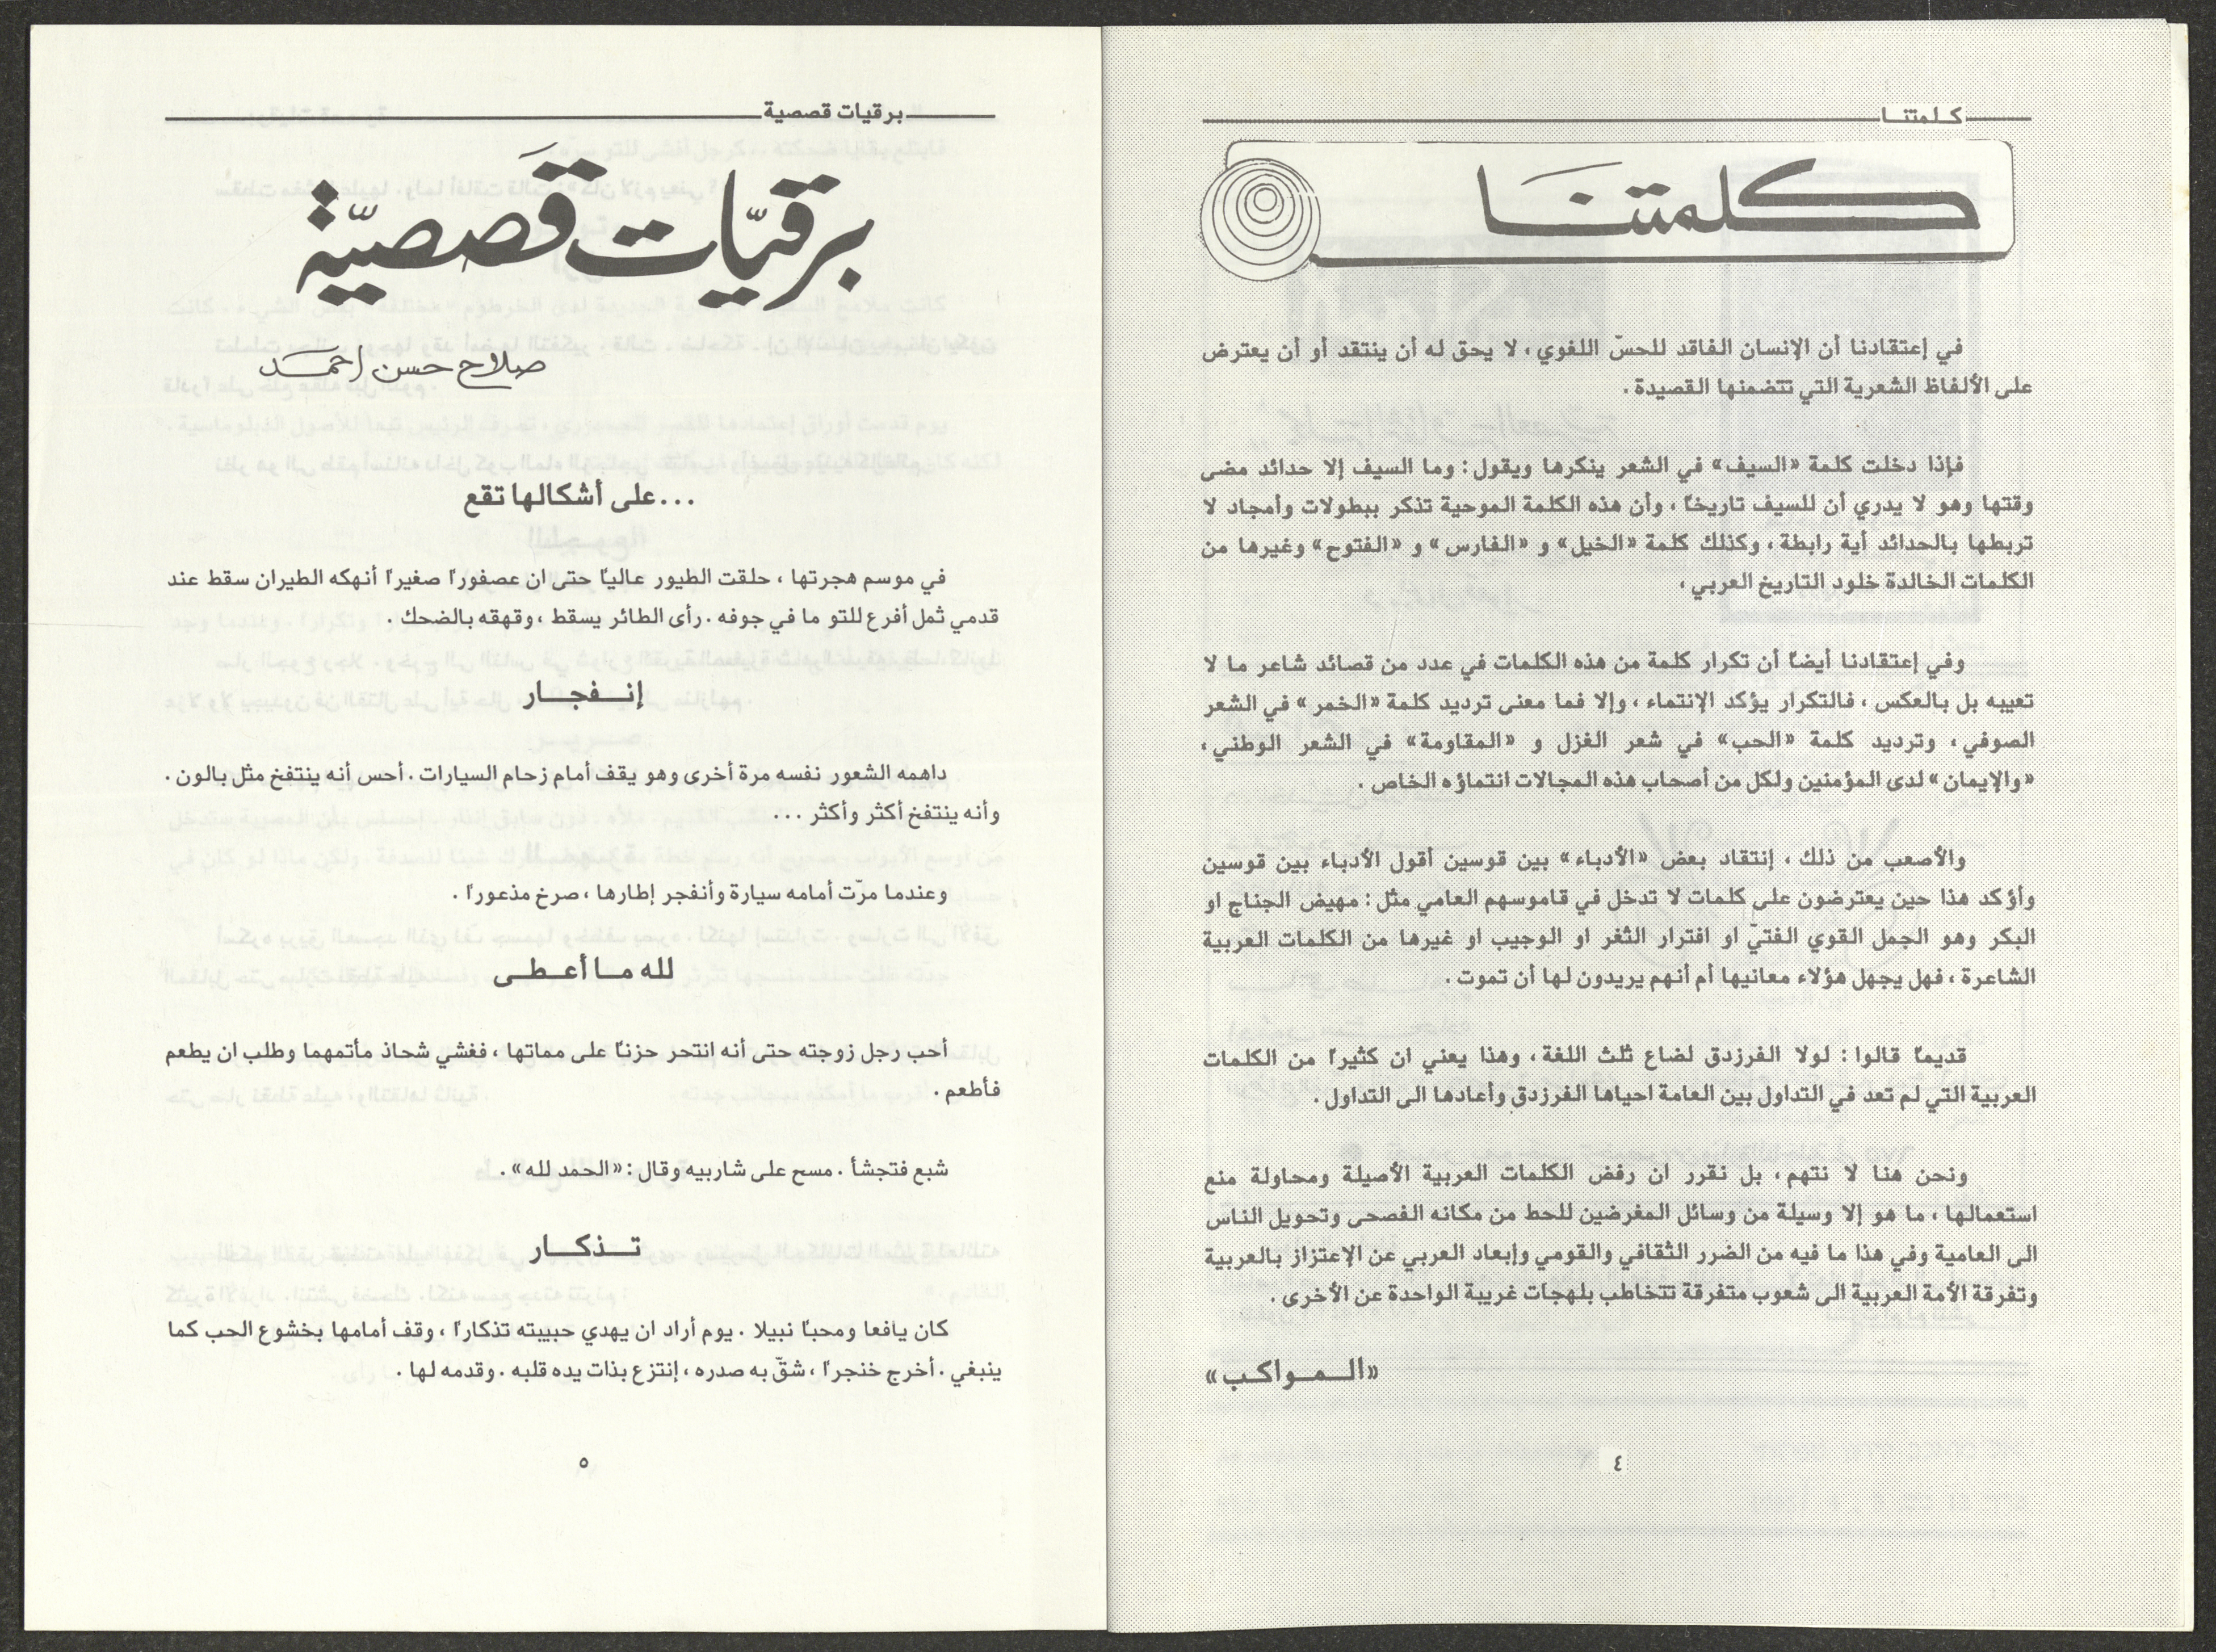 كـلـمتنـا
كلمتنَا
في إعتقادنا أن الإنسان الفاقد للحسّ اللغوي، لا يحق له أن ينتقد أو أن يعترض
على الألفاظ الشعرية التي تتضمنها القصيدة.
فإذا دخلت كلمة «السيف» في الشعر ينكرها ويقول: وما السيف إلا حدائد مضى
وقتها وهو لا يدري أن للسيف تاريخاً، وأن هذه الكلمة الموحية تذكر ببطولات وأمجاد لا
تربطها بالحدائد أية رابطة، وكذلك كلمة «الخيل» و «الفارس» و «الفتوح» وغيرها من
الكلمات الخالدة خلود التاريخ العربي،
وفي إعتقادنا أيضاً أن تكرار كلمة من هذه الكلمات في عدد من قصائد شاعر ما لا
تعيبه بل بالعكس، فالتكرار يؤكد الإنتماء، وإلا فما معنى ترديد كلمة «الخمر» في الشعر
الصوفي، وترديد كلمة «الحب» في شعر الغزل و «المقاومة» في الشعر الوطني،
«والإيمان» لدى المؤمنين ولكل من أصحاب هذه المجالات انتماؤه الخاص.
والأصعب من ذلك، إنتقاد بعض «الأدباء» بين قوسين أقول الأدباء بين قوسين
وأؤكد هذا حين يعترضون على كلمات لا تدخل في قاموسهم العامي مثل: مهيض الجناح او
البكر وهو الجمل القوي الفتيّ او افترار الثغر او الوجيب او غيرها من الكلمات العربية
الشاعرة، فهل يجهل هؤلاء معانيها أم أنهم يريدون لها أن تموت.
قديماً قالوا: لولا الفرزدق لضاع ثلث اللغة، وهذا يعني ان كثيراً من الكلمات
العربية التي لم تعد في التداول بين العامة احياها الفرزدق وأعادها الى التداول.
ونحن هنا لا نتهم، بل نقرر ان رفض الكلمات العربية الأصيلة ومحاولة منع
استعمالها، ما هو إلا وسيلة من وسائل المغرضين للحط من مكانه الفصحى وتحويل الناس
الى العامية وفي هذا ما فيه من الضرر الثقافي والقومي وإبعاد العربي عن الإعتزاز بالعربية
وتفرقة الأمة العربية الى شعوب متفرقة تتخاطب بلهجات غريبة الواحدة عن الأخرى.
«الـمـواكـب»
٤
برقيات قصصية
برقيّات قَصصيّة
صلاح حسن احمَد
...على أشكالها تقع
في موسم هجرتها، حلقت الطيور عالياً حتى ان عصفوراً صغيراً أنهكه الطيران سقط عند
قدمي ثمل أفرع للتو ما في جوفه. رأى الطائر يسقط، وقهقه بالضحك.
إنـفجـار
داهمه الشعور نفسه مرة أخرى وهو يقف أمام زحام السيارات. أحس أنه ينتفخ مثل بالون.
وأنه ينتفخ أكثر وأكثر...
وعندما مرّت أمامه سيارة وأنفجر إطارها، صرخ مذعوراً.
لله مـا أعـطـى
أحب رجل زوجته حتى أنه انتحر حزناً على مماتها، فغشي شحاذ مأتمهما وطلب ان يطعم
فأطعم.
شبع فتجشأ. مسح على شاربيه وقال: «الحمد لله».
تـذكـار
كان يافعا ومحباً نبيلا. يوم أراد ان يهدي حبيبته تذكاراً، وقف أمامها بخشوع الحب كما
ينبغي. أخرج خنجراً، شقّ به صدره، إنتزع بذات يده قلبه. وقدمه لها.
٥